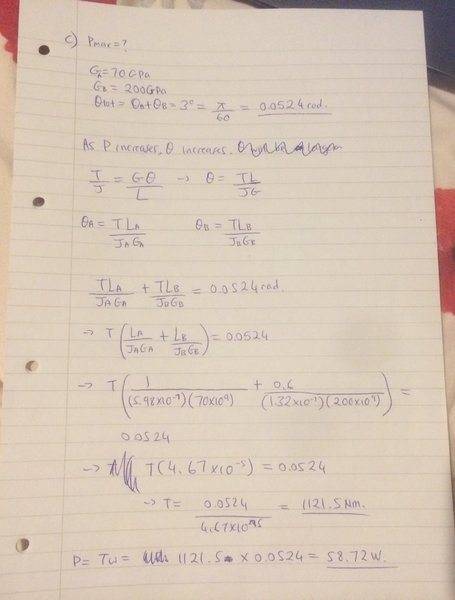 c) Pmax = ?
G_A = 70 GPa
G_B = 200 GPa
θtot = θ_A + θ_B = 3° = π/60 = 0.0524 rad.
As P increases, θ increases.
T/J = Gθ/L → θ = TL/JG
θ_A = TL_A/J_A G_A θ_B = TL_B/J_B G_B
TL_A/J_A G_A + TL_B/J_B G_B = 0.0524 rad.
→ T(L_A/J_A G_A + L_B/J_B G_B) = 0.0524
→ T(1/(5.98×10⁻⁷)(70×10⁹) + 0.6/(1.32×10⁻⁷)(200×10⁹)) =
0.0524
→ T(4.67×10⁻⁵) = 0.0524
→ T = 0.0524/4.67×10⁻⁵ = 1121.5 Nm.
P = Tω = 1121.5 × 0.0524 = 58.72 W.